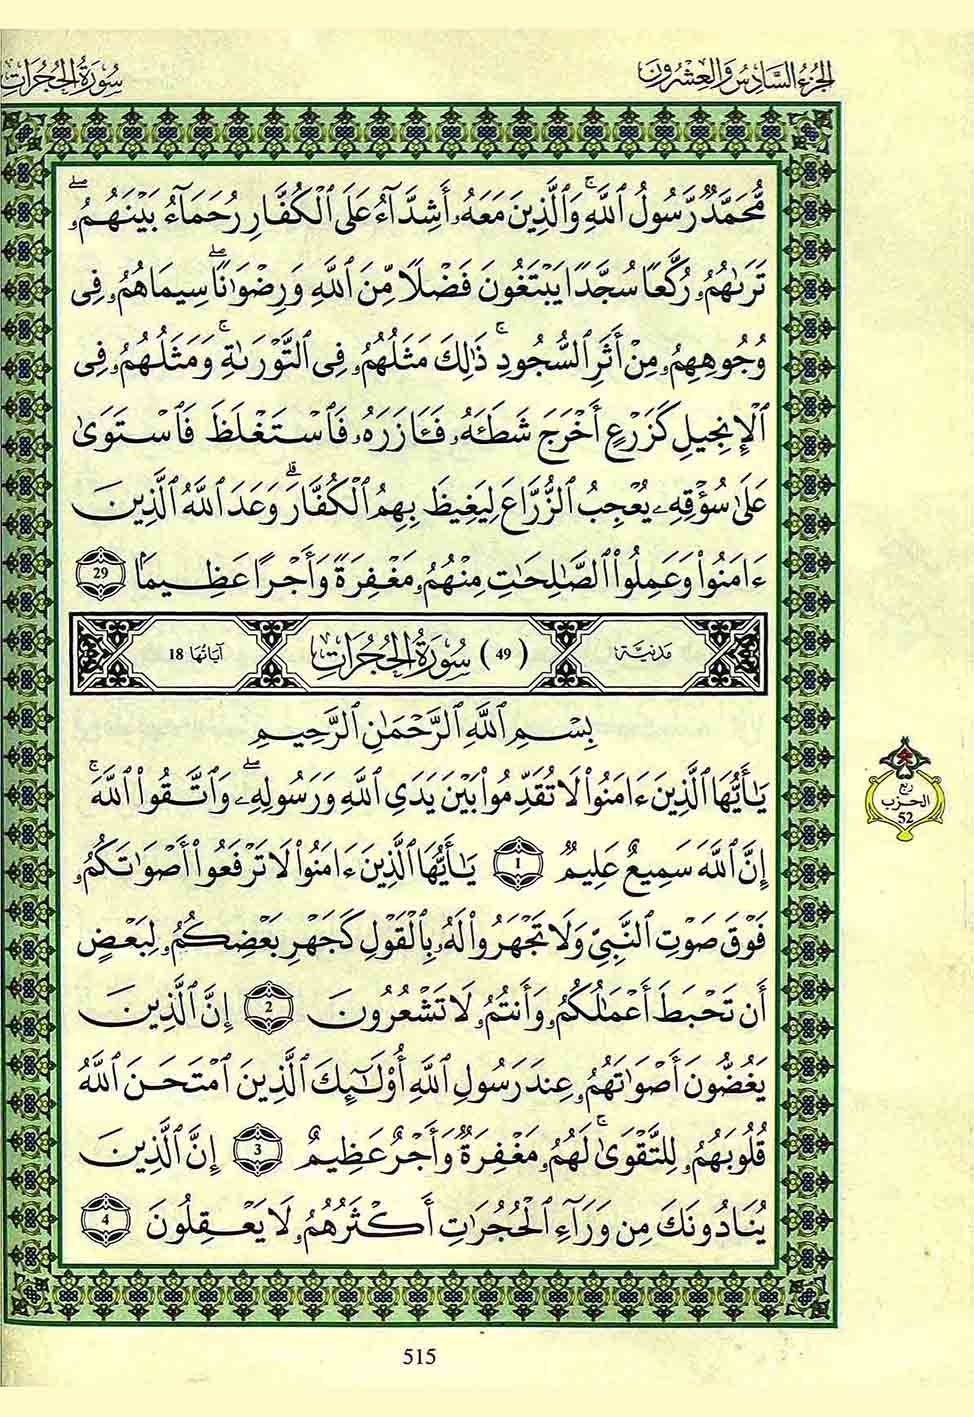 الجزء السادس والعشرون
سورة الحجرات
مُّحَمَّدٌ رَّسُولُ اُ۬للَّهِۚ وَالَّذِينَ مَعَهُۥ أَشِدَّآءُ عَلَى اَ۬لْكُفَّارِ رُحَمَآءُ بَيْنَهُمُۥۖ
تَرَىٰهُمُۥ رُكَّعاً سُجَّداً يَبْتَغُونَ فَضْلاً مِّنَ اَ۬للَّهِ وَرِضْوَٰناًۖ سِيمَاهُمُۥ فِى
وُجُوهِهِمُۥ مِنْ أَثَرِ اِ۬لسُّجُودِۚ ذَٰلِكَ مَثَلُهُمُۥ فِى اِ۬لتَّوْرَىٰةِۚ وَمَثَلُهُمُۥ فِى
اِ۬لْإِنجِيلِ كَزَرْعٍ أَخْرَجَ شَطَـَٔهُۥ فَـَٔازَرَهُۥ فَاسْتَغْلَظَ فَاسْتَوَىٰ
عَلَىٰ سُؤْقِهِۦ يُعْجِبُ اُ۬لزُّرَّاعَ لِيَغِيظَ بِهِمُ اُ۬لْكُفَّارَۗ وَعَدَ اَ۬للَّهُ اُ۬لَّذِينَ
ءَامَنُواْ وَعَمِلُواْ اُ۬لصَّٰلِحَٰتِ مِنْهُمُۥ مَغْفِرَةً وَأَجْراً عَظِيماً 29
مدنية (49) سورة الحجرات آياتها 18
بِسْمِ اِ۬للَّهِ اِ۬لرَّحْمَٰنِ اِ۬لرَّحِيمِ
يَٰٓأَيُّهَا اَ۬لَّذِينَ ءَامَنُواْ لَا تُقَدِّمُواْ بَيْنَ يَدَىِ اِ۬للَّهِ وَرَسُولِهِۦۖ وَاتَّقُواْ اُ۬للَّهَۚ
إِنَّ اَ۬للَّهَ سَمِيعٌ عَلِيمٌ 1 يَٰٓأَيُّهَا اَ۬لَّذِينَ ءَامَنُواْ لَا تَرْفَعُواْ أَصْوَٰتَكُمُۥ
فَوْقَ صَوْتِ اِ۬لنَّبِىِّ وَلَا تَجْهَرُواْ لَهُۥ بِالْقَوْلِ كَجَهْرِ بَعْضِكُمُۥ لِبَعْضٍ
أَن تَحْبَطَ أَعْمَٰلُكُمُۥ وَأَنتُمُۥ لَا تَشْعُرُونَ 2 إِنَّ اَ۬لَّذِينَ
يَغُضُّونَ أَصْوَٰتَهُمُۥ عِندَ رَسُولِ اِ۬للَّهِ أُوْلَٰٓئِكَ اَ۬لَّذِينَ اَ۪مْتَحَنَ اَ۬للَّهُ
قُلُوبَهُمُۥ لِلتَّقْوَىٰۚ لَهُمُۥ مَغْفِرَةٌ وَأَجْرٌ عَظِيمٌ 3 إِنَّ اَ۬لَّذِينَ
يُنَادُونَكَ مِن وَرَآءِ اِ۬لْحُجُرَٰتِ أَكْثَرُهُمُۥ لَا يَعْقِلُونَ 4
ربع
الحزب
52
515